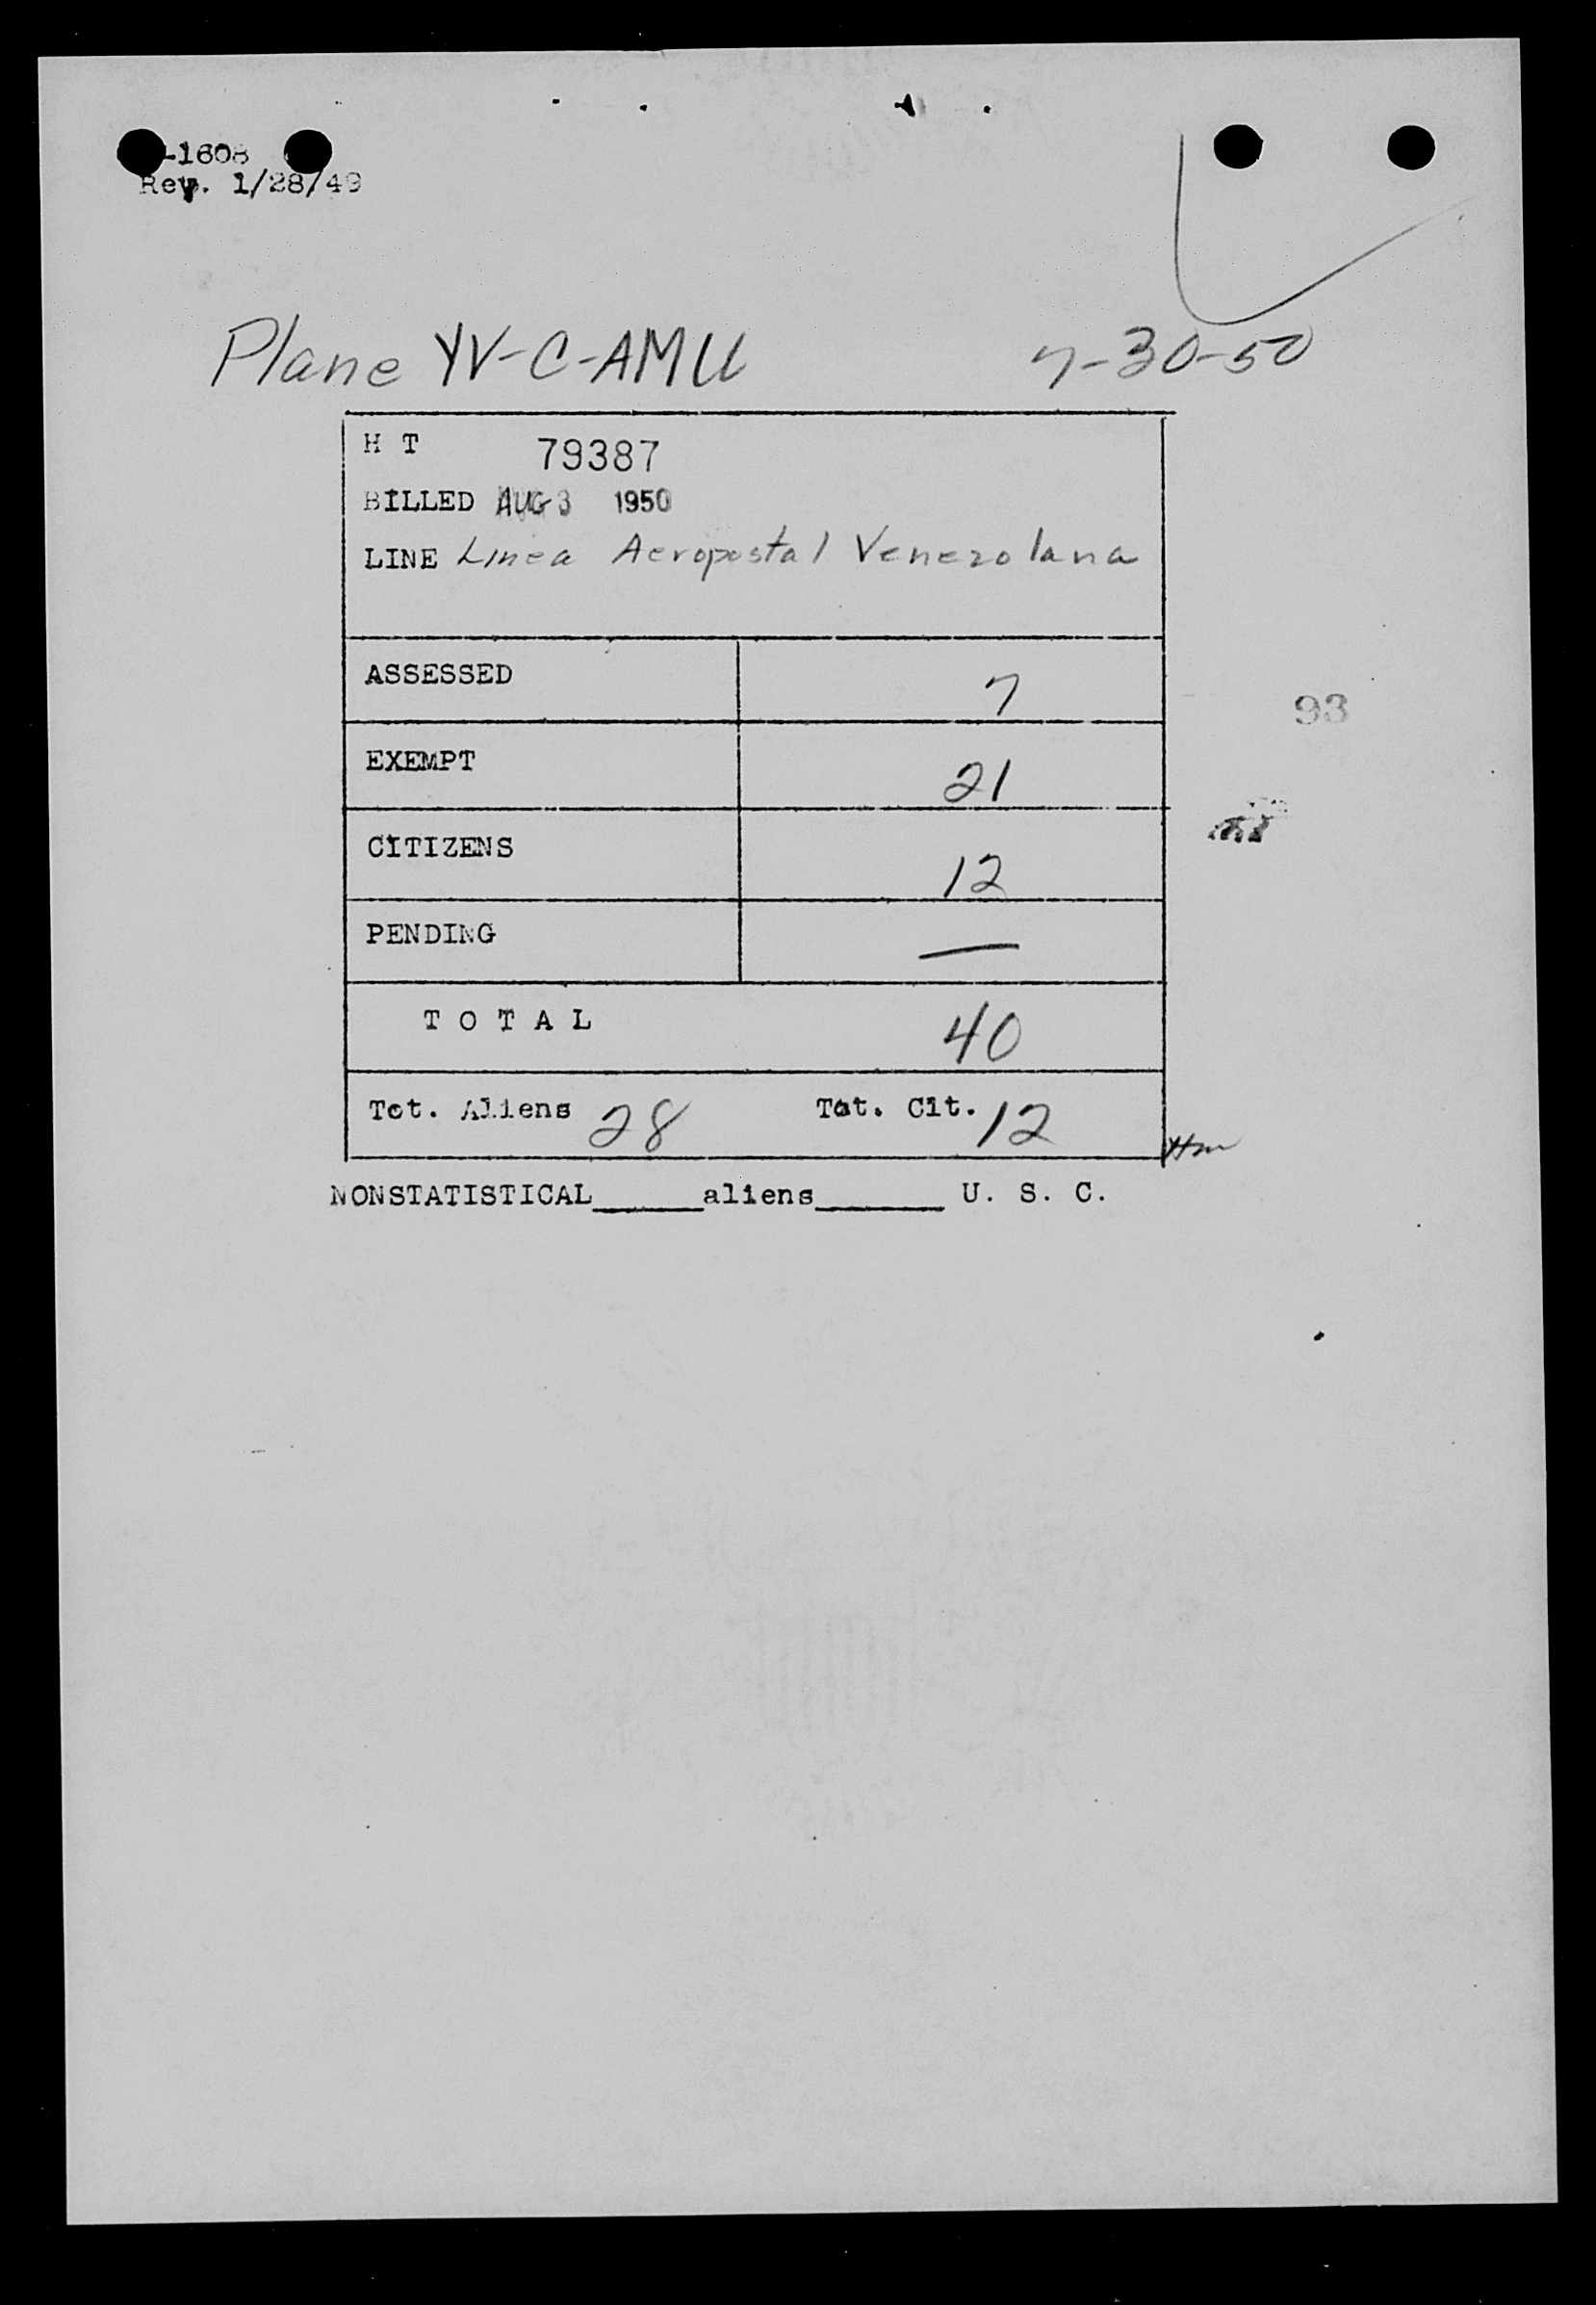 -1608
Rev. 1/28/49
Plane YV-C-AMU 7-30-50
H T 79387
BILLED AUG 3 1950
LINE Linea Aeropostal Venezolana
ASSESSED 7
93
EXEMPT 21
CITIZENS 12
PENDING —
T O T A L 40
Tot. Aliens 28 Tot. Cit. 12
NONSTATISTICAL______aliens_______ U. S. C.